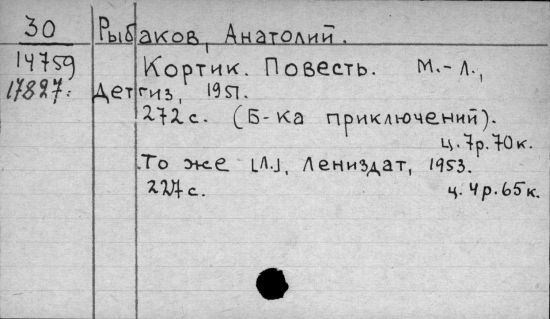 30 Рыбаков, Анатолий.
14759 Кортик. Повесть. М.-Л.,
17827: Детгиз, 1951.
272 с. (Б-ка приключений).
ц. 7 р. 70 к.
То же [Л.], Лениздат, 1953.
227 с. ц. 4 р. 65 к.